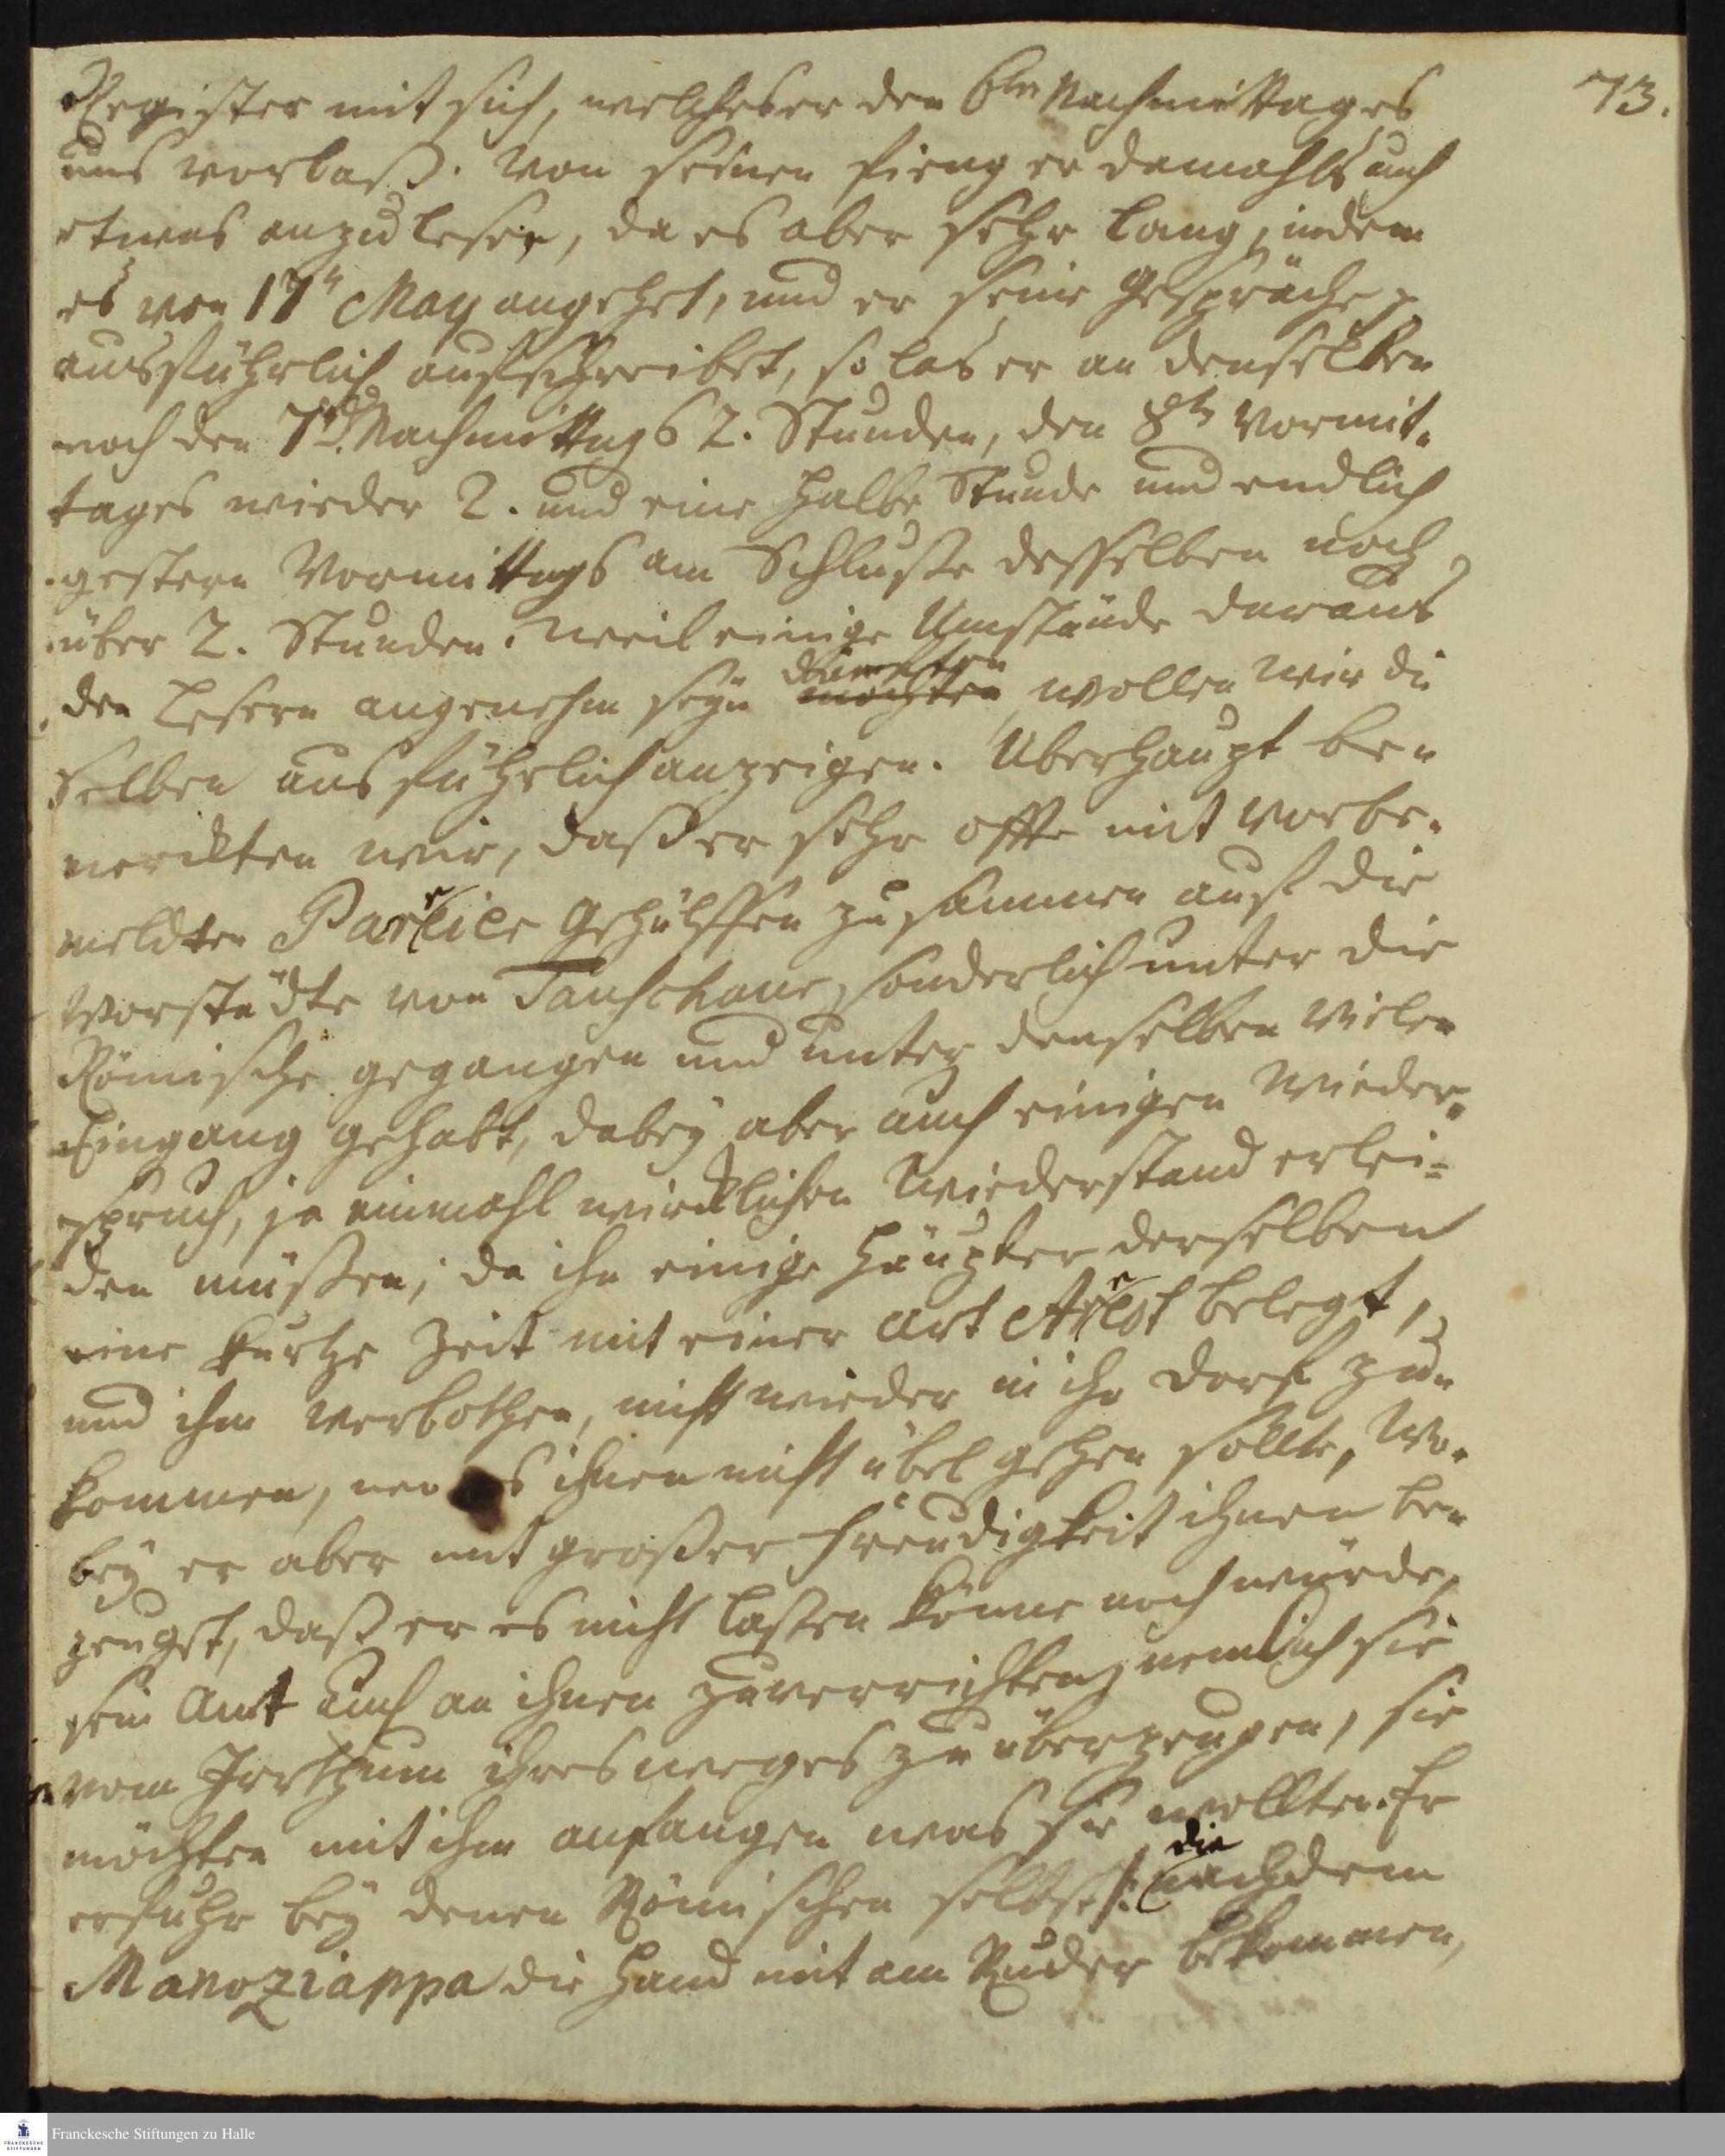 73.
Register mit sich, welches er den 6ten Nachmittages
uns vorlaß. Von seinen fieng er damahls auch
etwas an zu lesen, da es aber sehr lang, indem
es von 17n May angehet, und er seine Gespräche
ausführlich aufschreibet, so las er an denselben
noch den 7t. Nachmittags 2. Stunden, den 8tn Vormit-
tages wieder 2. und eine halbe Stunde und endlich
gestern Vormittags am Schluße desselben noch
über 2. Stunden. Weil einige Umstände daraus
den Lesern angenehm seyn möchten, wollen wir die
selben ausführlich anzeigen. Uberhaupt be-
merckten wir, daß er sehr offte mit vorbe-
meldten Parreier Gehülffen zusammen auf die
Vorstädte von Tanschaur, sonderlich unter die
Römische gegangen und unter denselben vielen
Eingang gehabt, dabey aber auch einigen Wieder-
spruch, ja einmahl wircklichen Wiederstand erlei-
den müßen, da ihn einige Häupter derselben
eine kurtze Zeit mit einer Art Arrest belegt,
und ihm verbothen, nicht wieder in ihr Dorf zu-
kommen, wo es ihnen nicht übel gehen sollte, Wo-
bey er aber mit großer Freudigkeit ihnen be-
zeuget, daß er es nicht laßen könne noch würde,
sein Amt auch an ihnen zuverrichten, nemlich sie
vom Irrthum ihres weges zu überzeugen, sie
möchten mit ihm anfangen was sie wollten. Er
erfuhr bey denen Römischen selbst /: die nachdem
Manoziappa die Hand mit am Ruder bekommen,
Franckesche Stiftungen zu Halle